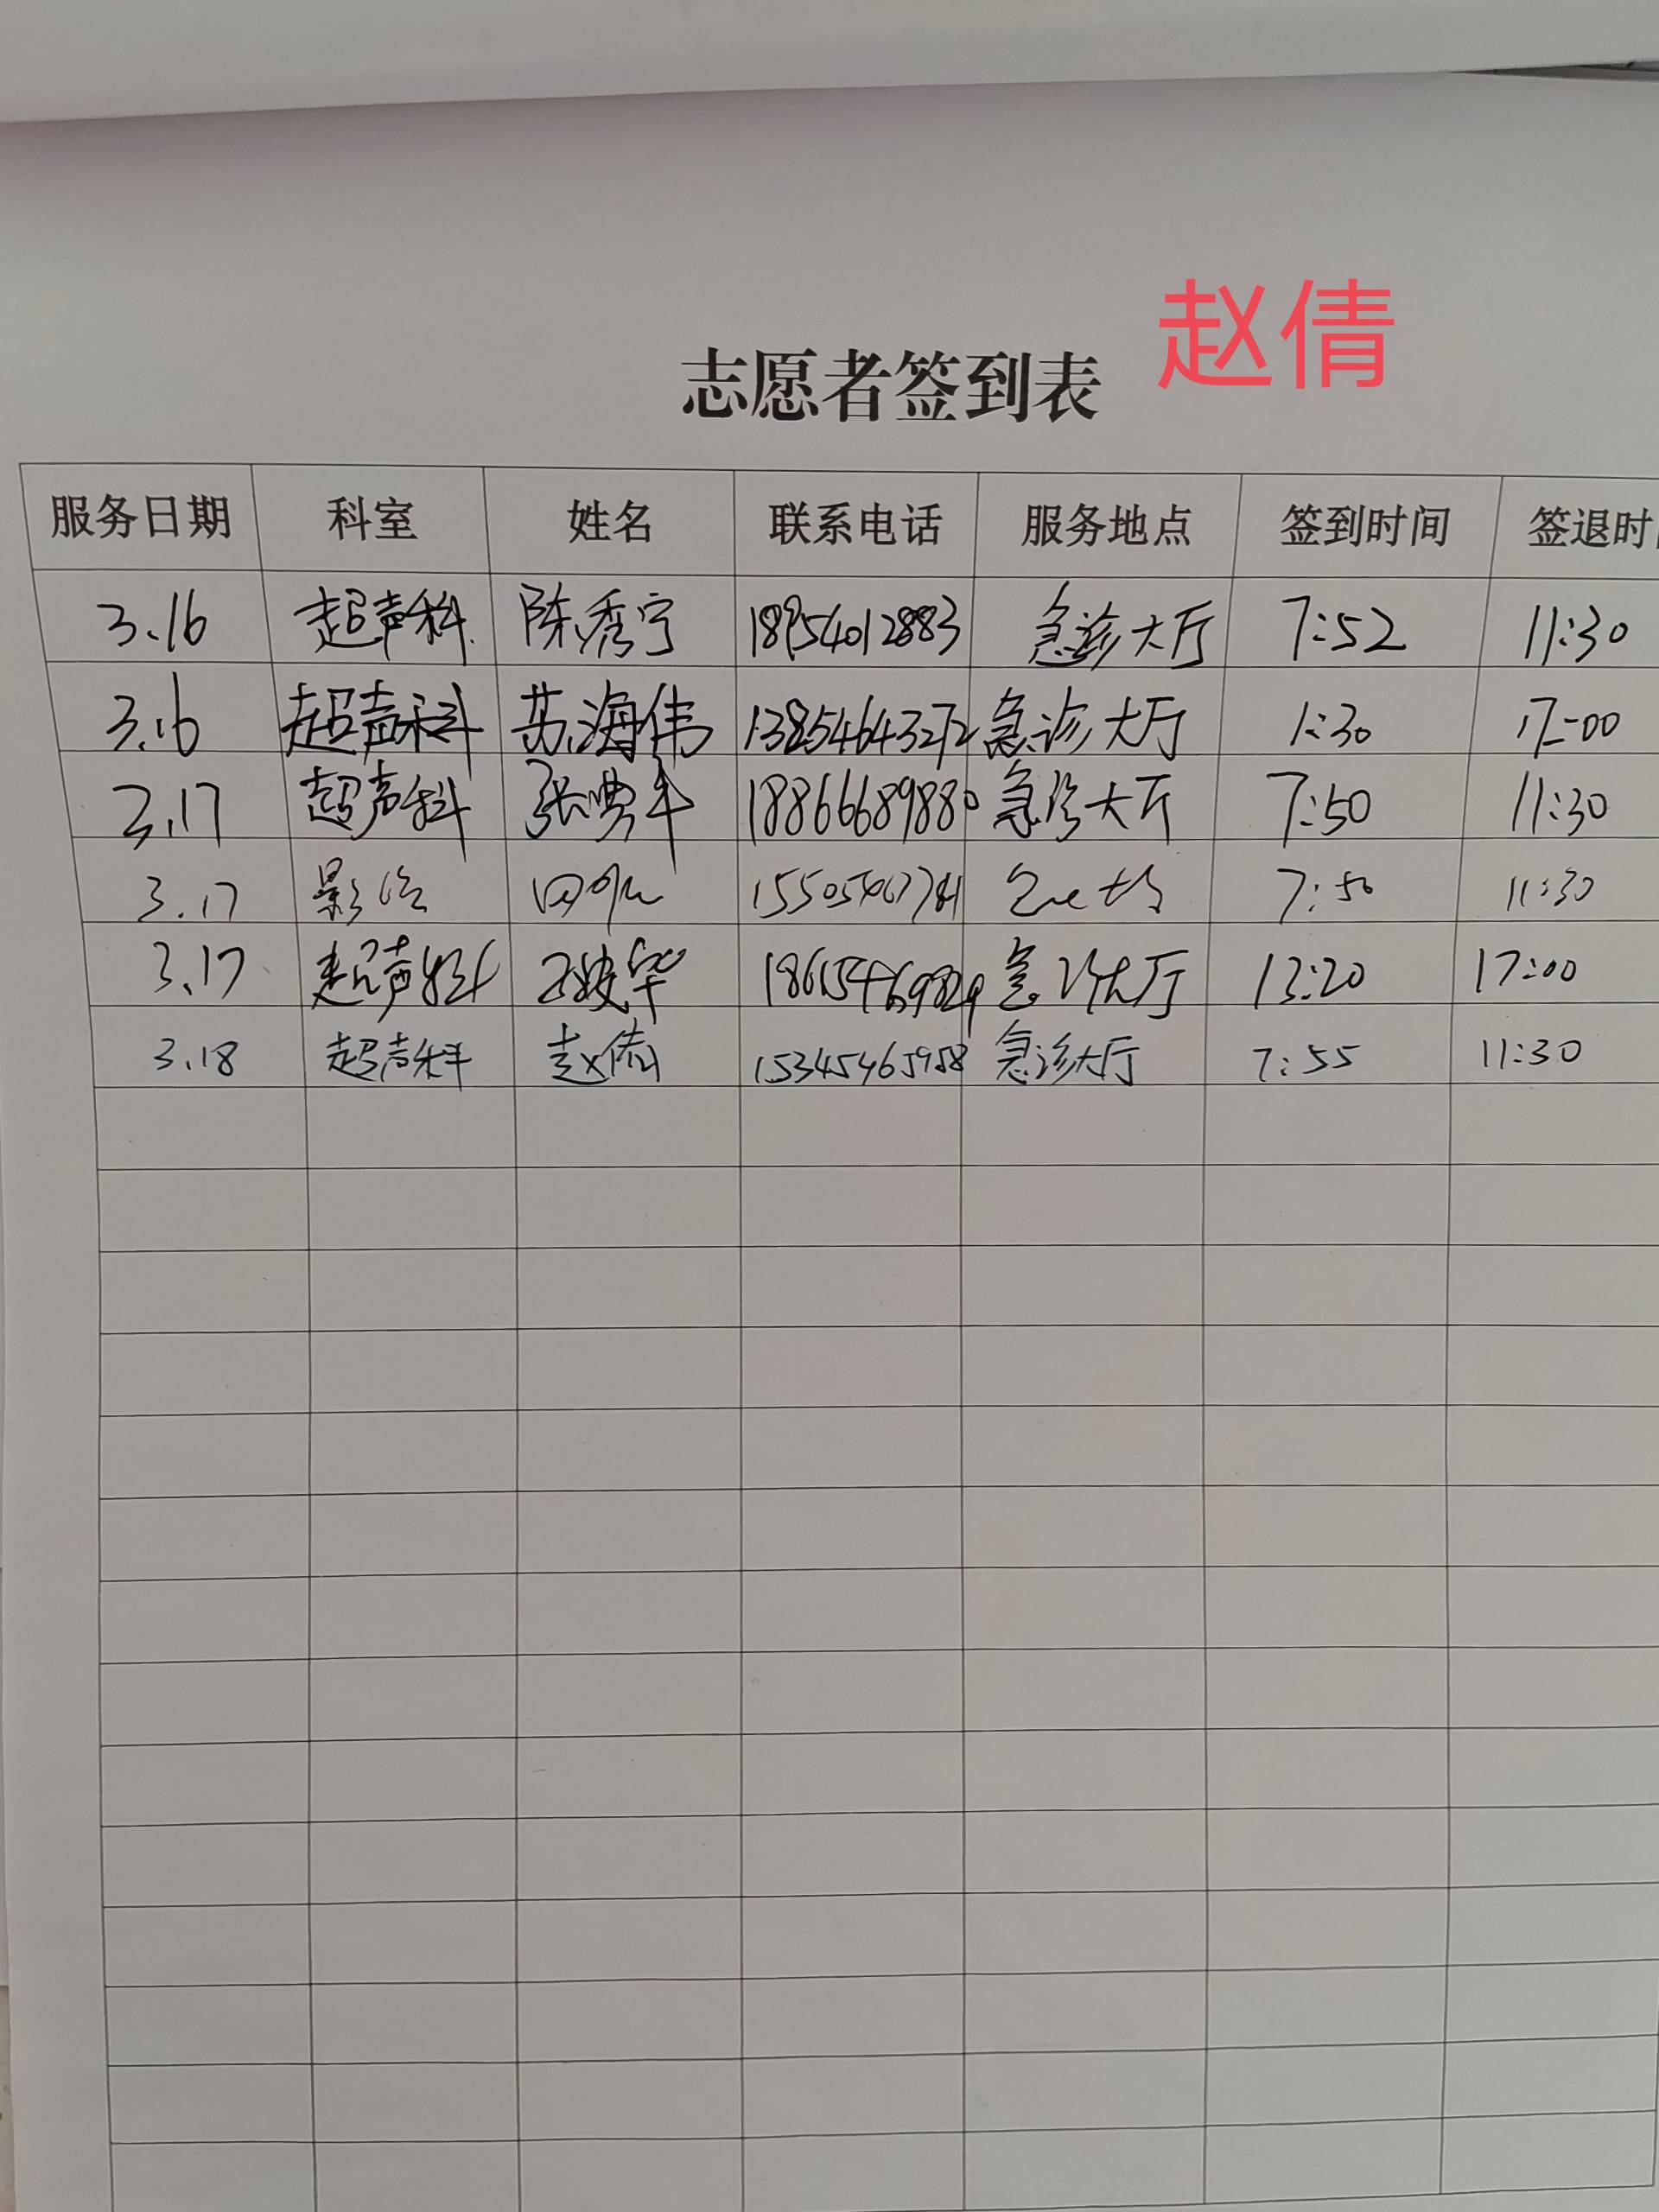 赵倩
志愿者签到表
服务日期 科室 姓名 联系电话 服务地点 签到时间 签退时
3.16 超声科 陈秀宁 18954012883 急诊大厅 7:52 11:30
3.16 超声科 苏海伟 13854643272 急诊大厅 1:30 17:00
3.17 超声科 张 18866689880 急诊大厅 7:50 11:30
3.17 影像 7:50 11:30
3.17 超声科 华 急诊大厅 13:20 17:00
3.18 超声科 赵倩 15345465958 急诊大厅 7:55 11:30